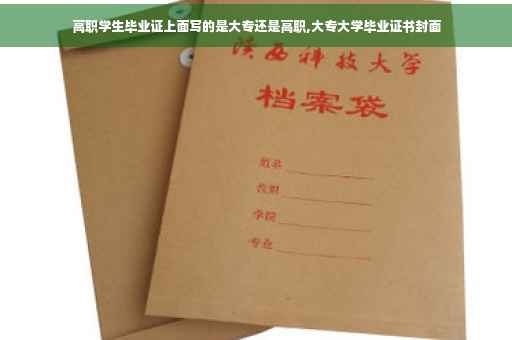 高职学生毕业证上面写的是大专还是高职,大专大学毕业证书封面
陕西科技大学
档案袋
学院
专业